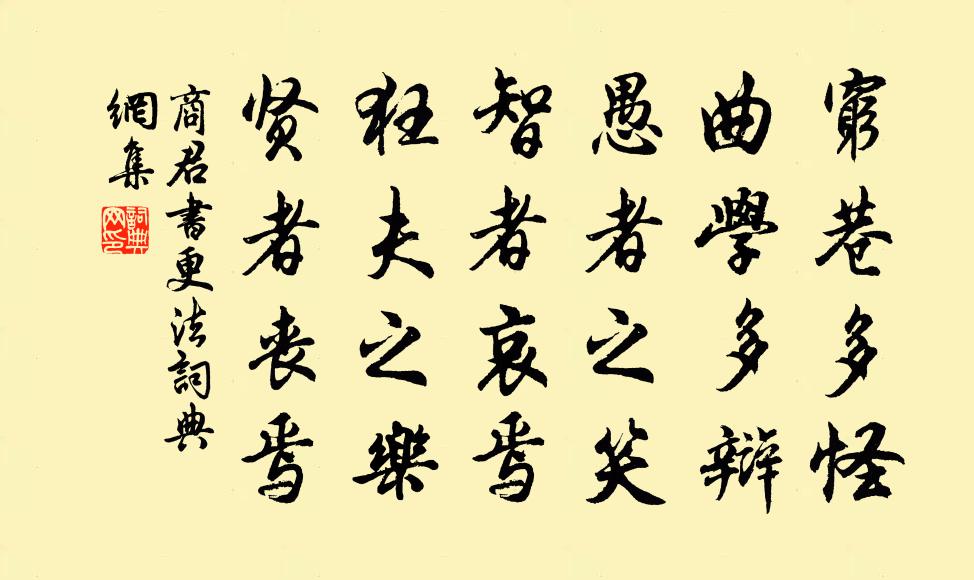 窮巷多怪
曲學多辯
愚者之笑
智者哀焉
狂夫之樂
贤者丧焉
商君書更法詞典
網集
詞典
网印